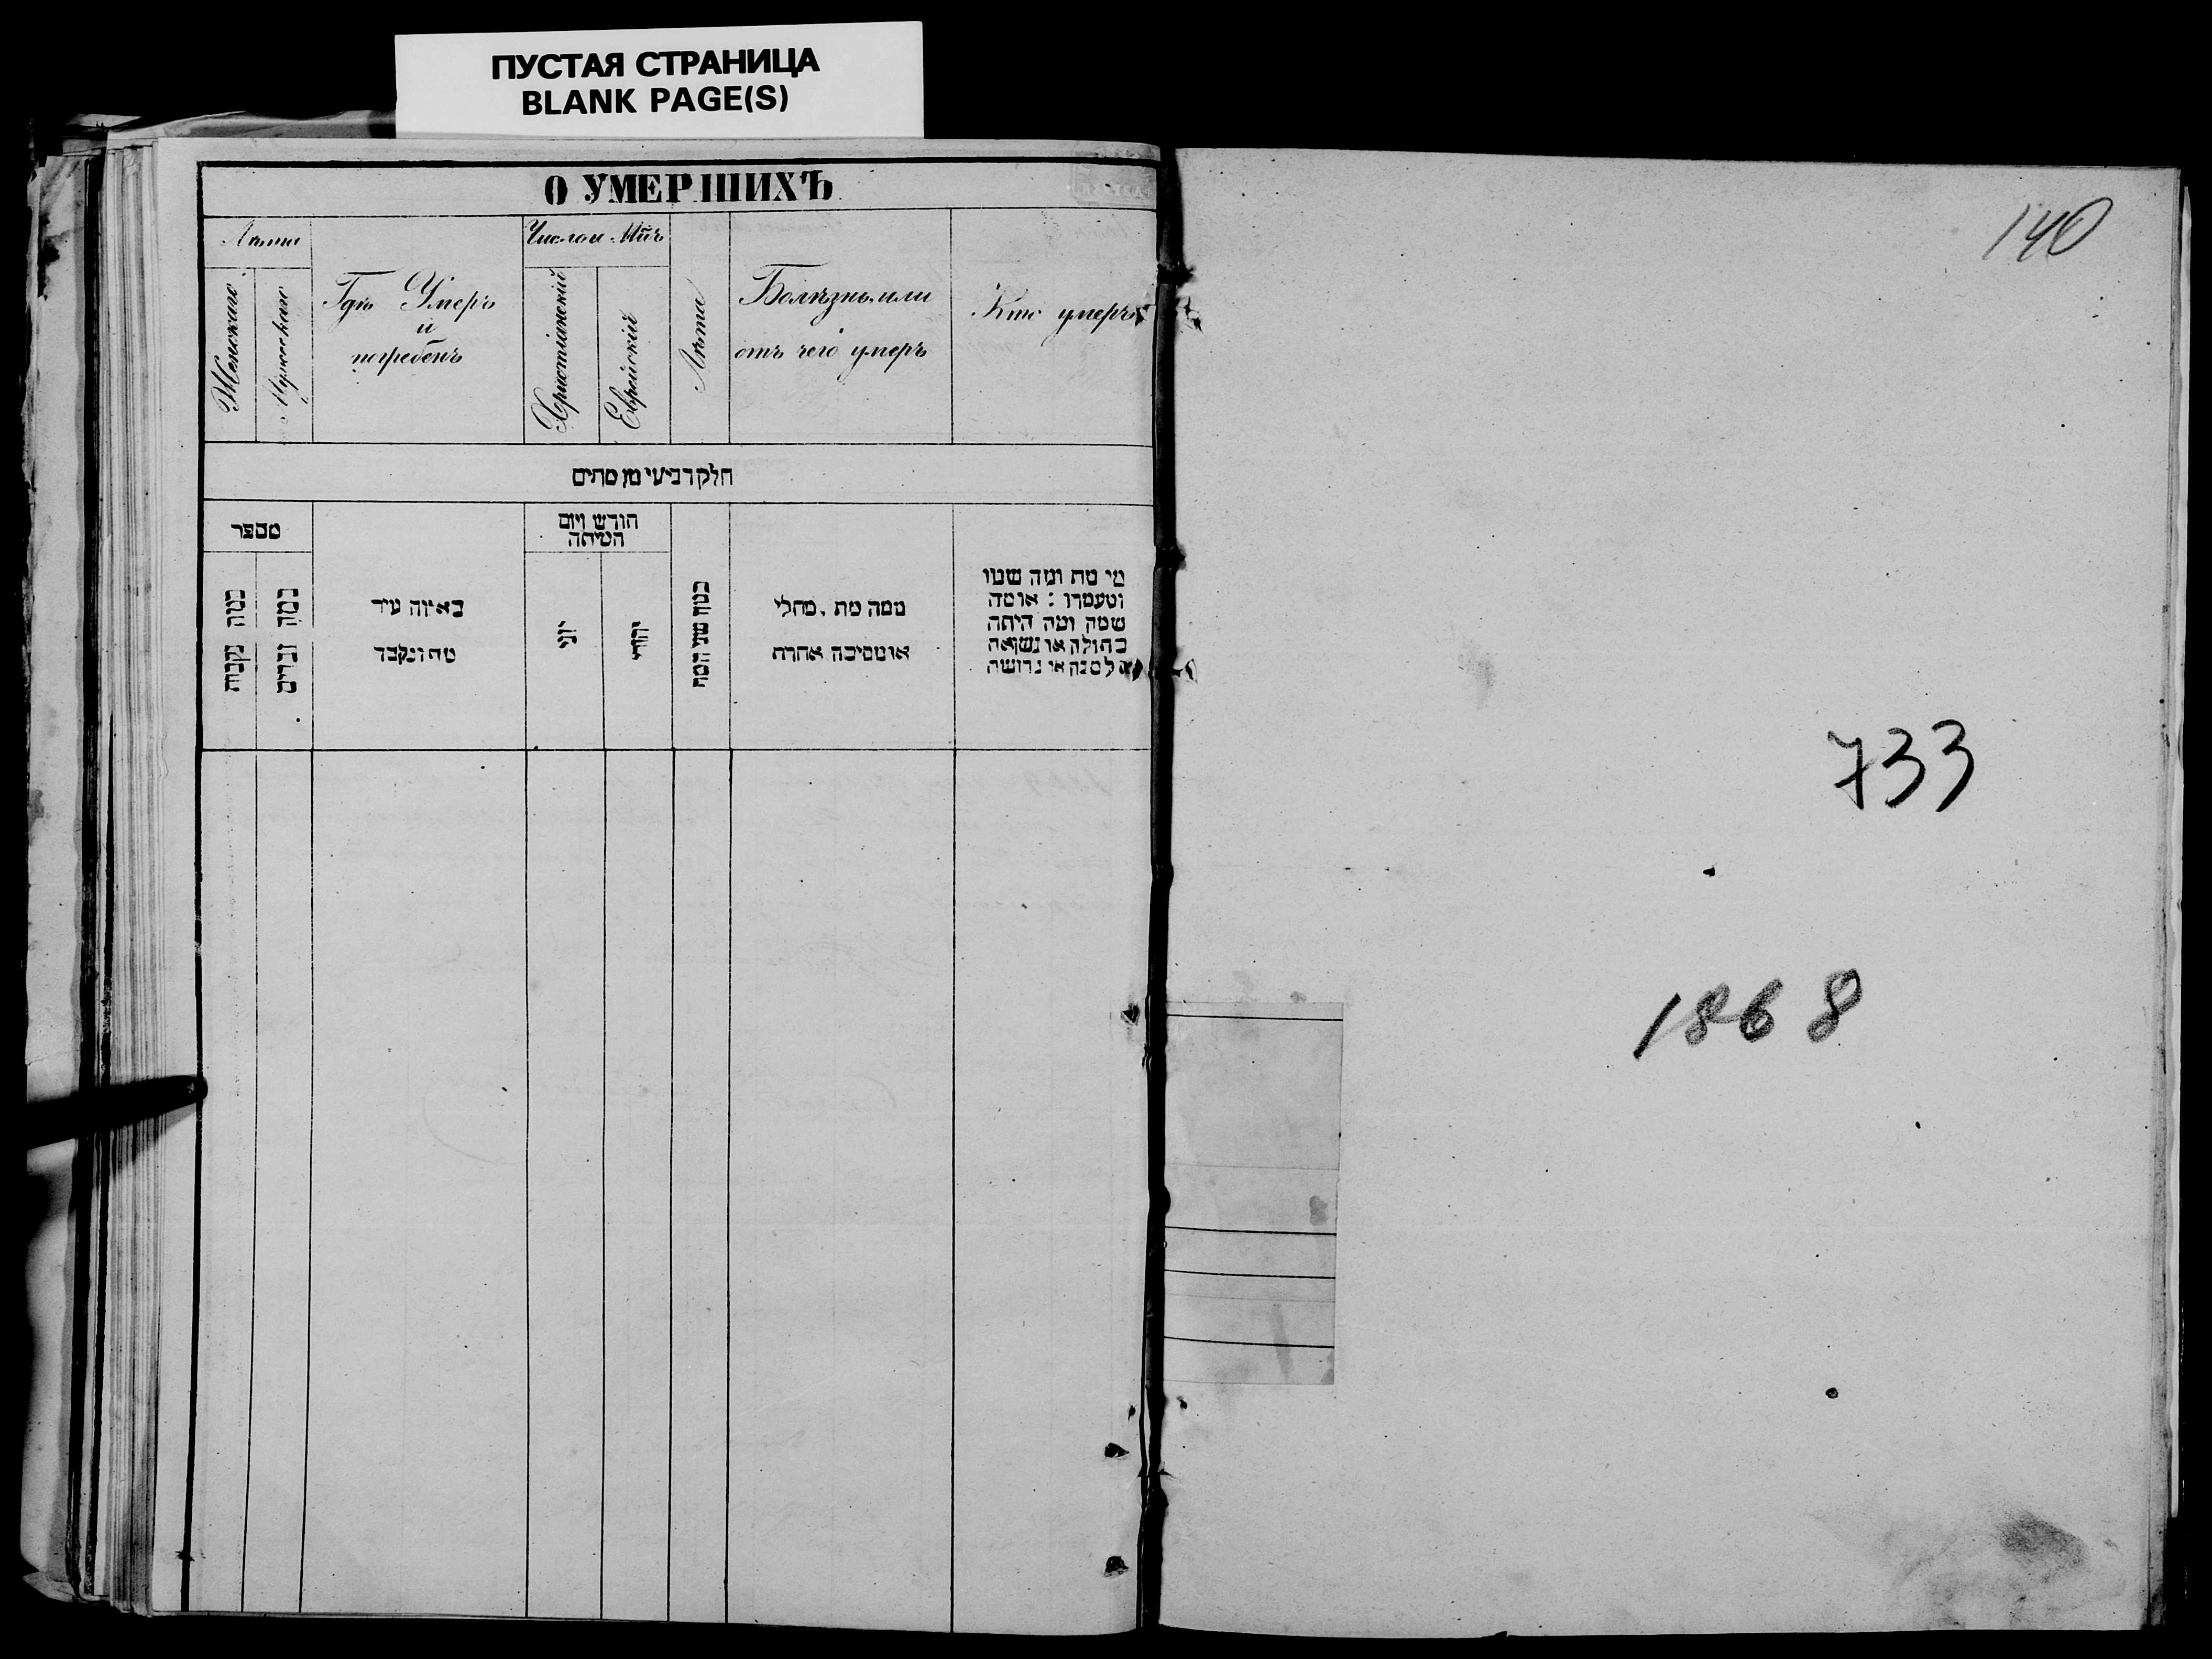 ПУСТАЯ СТРАНИЦА
BLANK PAGE(S)
О УМЕРШИХЪ
Лѣта
Женскаго
Мужескаго
Гдѣ Умеръ
и
погребенъ
Число и Мц̃ъ
Христіанскій
Еврейскій
Лѣта
Болѣзнь или
отъ чего умеръ
Кто умеръ
חלק רביעי מן מתים
מספר
כמה נקבות
כמה זכרים
באיזה עיר
מת ונקבר
חודש ויום
המיתה
יוני
יהודי
ממה מת, מחלי
או מסיבה אחרת
מי מת ומה שמו
ומעמדו : או מה
שמה ומה היתה
בתולה או נשואה
אלמנה או גרושה
140
733
1868